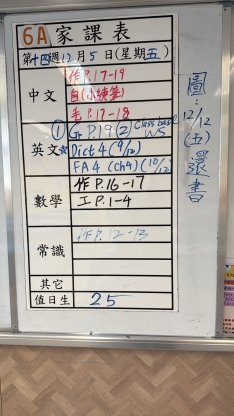 6A 家課表
第十四週12月5日(星期五)
中文
作P.17-19
自(小練筆)
毛P.17-18
英文☆
① Gr P.19(2) Class based WS
Dict 4 (9/12)
FA4 (ch4) (10/12)
數學
作P.16-17
工P.1-4
常識
作P.12-13
其它
值日生 25
圖: 12/12 (五) 還書